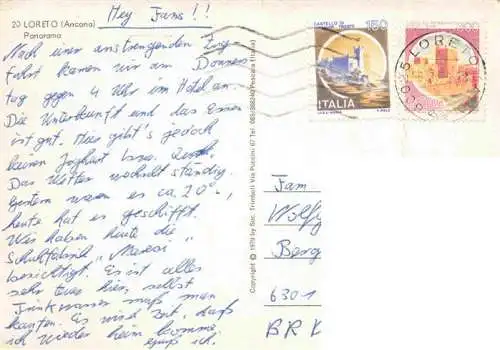 Hey Fans!!
20 LORETO (Ancona)
Panorama
Nach einer anstrengenden Zug-
fahrt kamen wir am Donners-
tag gegen 4 Uhr im Hotel an.
Die Unterkunft und das Essen
ist gut. Hier gibt's jedoch
keinen Joghurt bzw. Quark.
Das Wetter wechselt ständig.
Gestern waren es ca. 20°,
heute hat es geschifft.
Wir haben heute die
Schuhfabrik
besichtigt. Es ist alles
sehr teuer hier, selbst
Trinkwasser muß man
kaufen. Es wird Zeit, daß
ich wieder heim komme.
Copyright © 1979 by Soc. Trinfadi Via Puccini 67 Tel.
CASTELLO DI
150
ITALIA
LORETO
Fam
Wolfg
Berg
6301
BRK